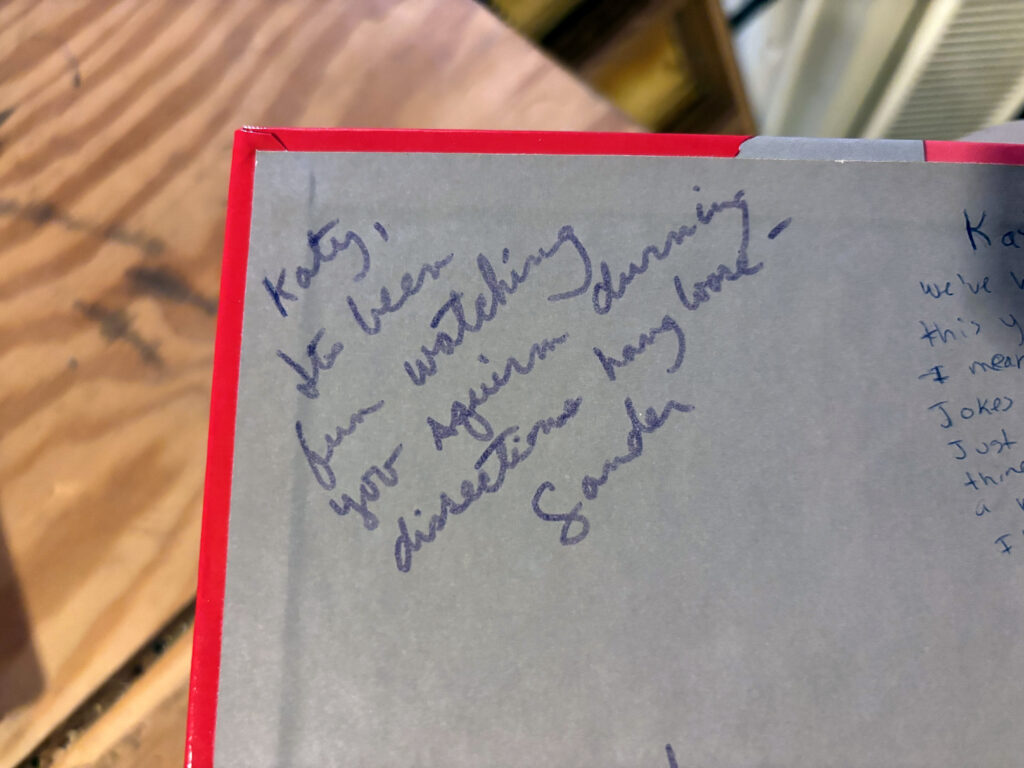 Katy,
Its been
fun watching
you squirm durning
dissections hang loose -
Sander
we've
this
I mean
Jokes
Just
a
I